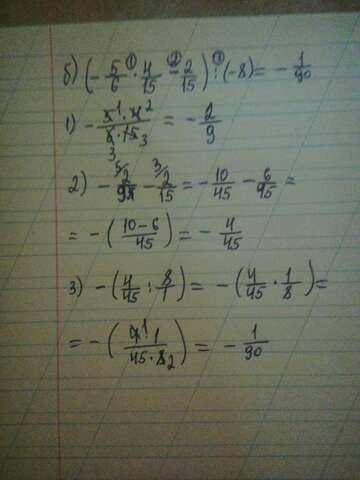 б) (- 5/6 ① · 4/15 ② - 2/15) ③ : (-8) = - 1/90
1) - 5 1 · 4 2 / 6 3 · 15 3 = - 2/9
2) - 5/ 2/9 - 3/ 2/15 = - 10/45 - 6/45 =
= - (10-6 / 45) = - 4/45
3) - (4/45 : 8/1) = - (4/45 · 1/8) =
= - (4 1 · 1 / 45 · 8 2) = - 1/90